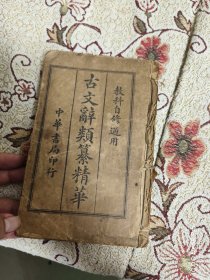 教科自修適用
古文辭類纂精華
中華書局印行